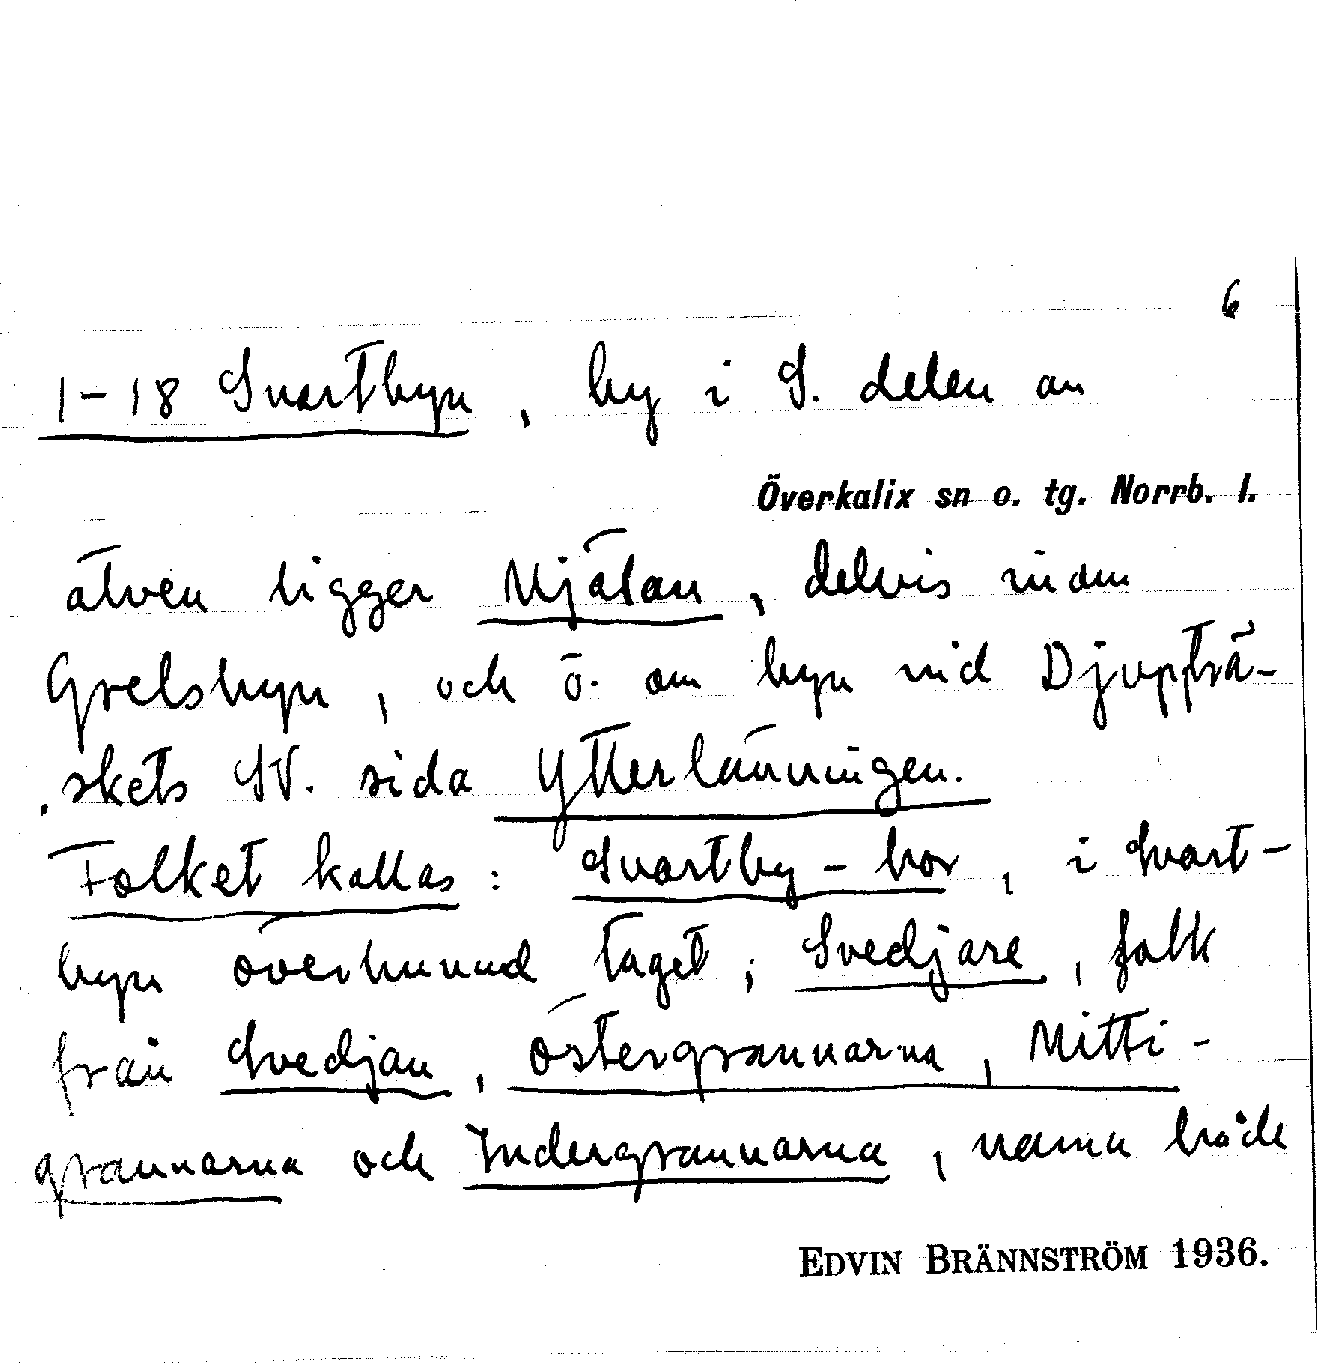 6
1-18 Svartbyn, by i S. delen av
Överkalix sn o. tg. Norrb. l.
älven ligger Mjälan, delvis inom
Grelsbyn, och ö. om byn vid Djupträ-
skets SV. sida Ytterlänningen.
Folket kallas: Svartby-bor, i Svart-
byn överhuvud taget; Svedjare, folk
från Svedjan, Östergrannarna, Mitti-
grannarna och Indergrannarna, namn både
EDVIN BRÄNNSTRÖM 1936.